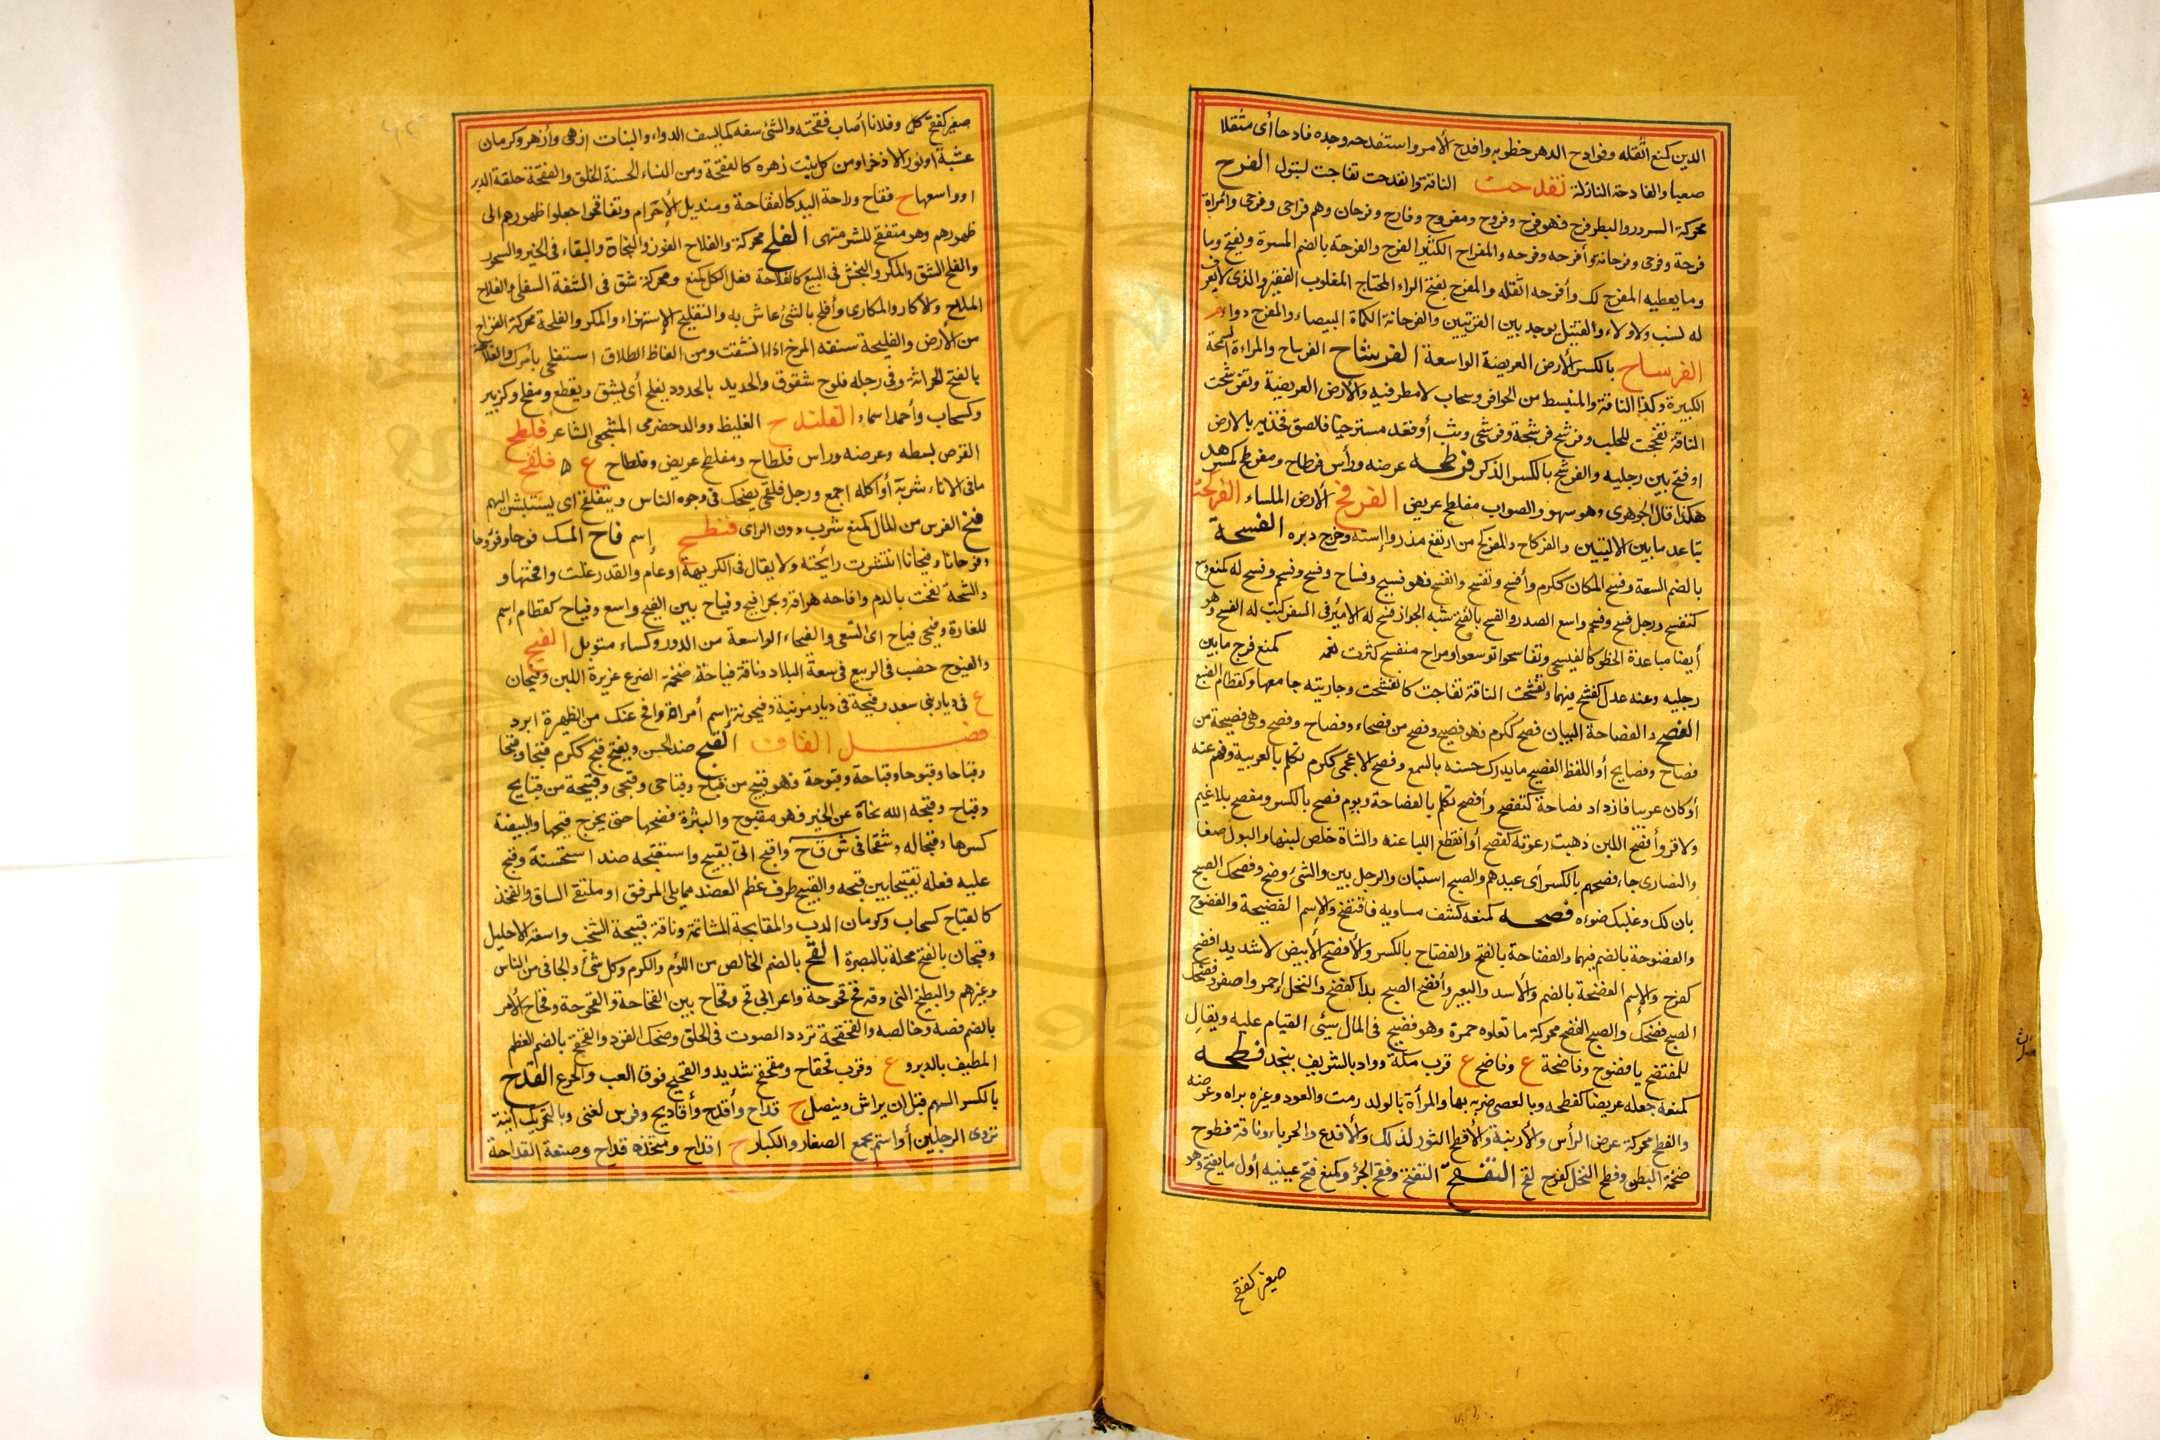 الدين كمنع أثقله وفوادح الدهر خطوبه وافدح الأمر واستفدحه وجده فادحا أى مثقلا
صعبا والفادحة النازلة تفدحت الناقة وانفدحت تفاجت لتبول الفرح
محركة السرور والبطر فرح فهو فرح وفروح ومفروح وفارح وفرحان وهم فراحى وفرحى وامرأة
فرحة وفرحى وفرحانة وأفرحه وفرحه والمفراح الكثير الفرح والفرحة بالضم المسرة ويفتح وما
وما يعطيه المفرح لك وأفرحه أثقله والمفرح بفتح الراء المحتاج المغلوب الفقير والذى لا يعرف
له نسب ولا ولاء والقتيل يوجد بين القريتين والفرحانة الكمأة البيضاء والمفرح دواء م
الفرساح بالكسر الأرض العريضة الواسعة الفرشاح الفرساح والمراءة السمجة
الكبيرة وكذا الناقة والمنبسط من الحوافر وسحاب لا مطر فيه والأرض العريضة وتفرشحت
الناقة تفحجت للحلب وفرشح فرشحة وفرشحى وثب أو قعد مسترخيا فالصق فخذيه بالارض
او فتح بين رجليه والفرشح بالكسر الذكر فرطحه عرضه ورأس فرطاح ومفرطح كمسرهد
هكذا قال الجوهرى وهو سهو والصواب مفلطح عريض الفرقح الأرض الملساء الفركحة
تباعد ما بين الاليتين والفركاح والمفركح من ارتفع مذروا إسته وخرج دبره الفسحة
بالضم السعة وفسح المكان ككرم وأفسح وتفسح وانفسح فهو فسيح وفساح وفسح وفسحم وفسح له كمنع وسع
كتفسح ورجل فسح وفسحم واسع الصدر والفسح بالفتح شبه الجواز فسح له الأمير فى السفر كتب له الفسح وهو
أيضا مباعدة الخطو كالفيسحى وتفاسحوا توسعوا ومراح منفسح كثرت نعمه كمنع فرج ما بين
رجليه وعنه عدل كفشح فيهما وتفشحت الناقة تفاجت كانفشحت وجاريته جامعها وكقطام الضبع
الفصح والفصاحة البيان فصح ككرم فهو فصيح وفصح من فصحاء وفصاح وفصح وهى فصيحة من
فصاح وفصايح أو اللفظ الفصيح ما يدرك حسنه بالسمع وفصح الاعجمى ككرم تكلم بالعربية وفهم عنه
أو كان عربيا فازداد فصاحة كتفصح وأفصح تكلم بالفصاحة ويوم فصح بالكسر ومفصح بلا غيم
ولا قر وأفصح اللبن ذهبت رغوته كفصح أو انقطع اللبا عنه والشاة خلص لبنها والبول صفا
والنصارى جاء فصحهم بالكسر أى عيدهم والصبح استبان والرجل بين والشئ وضح وفصحك الصبح
بان لك وغلبك ضوءه فضحه كمنعه كشف مساويه فافتضح والإسم الفضيحة والفضوح
والفضوحة بالضم فيهما والفضاحة بالفتح والفضاح بالكسر والأفضح الأبيض لا شديدا فضح
كفرح والإسم الفضحة بالضم والأسد والبعير وأفضح الصبح بدا كفضح والنخل إحمر واصفر وفضحك
الصبح فضحك والصبح الفضح محركة ما تعلوه حمرة وهو فضيح فى المال سيئ القيام عليه ويقال
للمفتضح يا فضوح وفاضحة ع وفاضح ع قرب مكة وواد بالشريف بنجد فطحه
كمنعه جعله عريضا كفطحه وبالعصى ضربه بها والمرأة بالولد رمت والعود وغيره براه وعرضه
والفطح محركة عرض الرأس والأرنبة والأفطح الثور لذلك والأفدع والحرباء وناقة فطوح
ضخمة البطن وفطح النخل كفرح لقح التفقح التفتح وفقح الجرو كمنع فتح عينيه أول ما يفتح وهو
صغير كفقح
صغير كفقح كل وفلانا أصاب فقحته والشئ سفه كما يسف الدواء والنبات ازهى وأزهر وكرمان
عشبة او نور الاذخر او من كل نبت زهره كالفقحة ومن النساء الحسنة الخلق والفقحة حلقة الدبر
او واسعها ح فقاح وراحة اليد كالفقاحة ومنديل الأحرام وتفاقحوا جعلوا ظهورهم الى
ظهورهم وهو متفقح للشر متهى الفلح محركة والفلاح الفوز والنجاة والبقاء فى الخير والسحور
والفلح الشق والمكر والنجش فى البيع كالفلاحة فعل الكل كمنع ومحركة شق فى الشفة السفلى والفلاح
الملاح والأكار والمكارى وأفلح بالشئ عاش به والتفليح الإستهزاء والمكر والفلحة محركة القراح
من الأرض والفليحة سنفة المرخ اذا انشقت ومن الفاظ الطلاق استفلحى بأمرك والفلاحة
بالفتح الحراثة وفى رجله فلوح شقوق والحديد بالحديد يفلح أى يشق ويقطع ومفلح وكزبير
وكسحاب وأحمد اسماء الفلندح الغليظ ووالد حضرمى المشجعى الشاعر فلطح
القرص بسطه وعرضه وراس فلطاح ومفلطح عريض وفلطاح ع فلقح
ما فى الاناء شربه أو اكله اجمع ورجل فلقحى يضحك فى وجوه الناس ويتفلقح اى يستبشر اليهم
فنح الفرس من المال كمنع شرب دون الراى فنطح إسم فاح المسك فوحا وفؤوحا
وفوحانا وفيحانا انتشرت رائحته ولا يقال فى الكريهة او عام والقدر غلت وافحتها و
والشجة نفحت بالدم وافاحه هراقه وبحر افيح وفياح بين الفيح واسع وفياح كقطام إسم
للغارة وفيحى فياح اى اتسعى والفيحاء الواسعة من الدور وكساء متوبل الفيح
والفيوح خصب الربيع فى سعة البلاد وناقة فياحة ضخمة الضرع غزيرة اللبن وفيحان
ع فى ديار بنى سعد وفيحة فى ديار مزينة وفيحونة إسم أمراة وافح عنك من الظهيرة ابرد
فصل القاف القبح ضد الحسن ويفتح قبح ككرم قبحا وقبحا
وقباحا وقبوحا وقباحة وقبوحة فهو قبيح من قباح وقباحى وقبحى وقبيحة من قبايح
وقباح وقبحه الله نحاه عن الخير فهو مقبوح والبثرة فضخها حتى يخرج قيحها والبيضة
كسرها وقبحا له وشقحا فى ش ق ح واقبح اتى بقبيح واستقبحه ضد استحسنه وقبح
عليه فعله تقبيحا بين قبحه والقبيح طرف عظم العضد مما يلى المرفق او ملتقى الساق والفخذ
كالقباح كسحاب وكرمان الدب والمقابحة المشاتمة وناقة قبيحة الشخب واسعة الاحليل
وقبحان بالفتح محلة بالبصرة القح بالضم الخالص من اللؤم والكرم وكل شئ والجافى من الناس
وغيرهم والبطيخ النى وقد قح قحوحة واعرابى قح وقحاح بين القحاحة والقحوحة وقحاح الأمر
بالضم فصه وخالصه والقحقحة تردد الصوت فى الحلق وضحك القرد والقحقح بالضم العظم
المطيف بالدبر وع وقرب قحقاح ومقحقح شديد والقحيح فوق العب والجرع القدح
بالكسر السهم قبل ان يراش وينصل ح قداح وأقدح وأقاديح وفرس لغنى وبالتحريك آنية
تروى الرجلين أو اسم يجمع الصغار والكبار ح اقداح ومتخذه قداح وصنعته القداحة